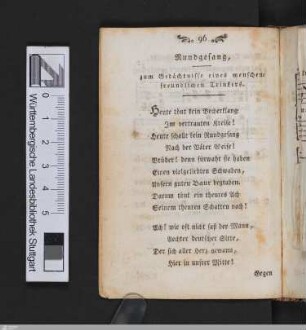 96
Rundgesang,
zum Gedächtnisse eines menschen-
freundlichen Trinkers.
Heute thut dein Becherklang
Im vertrauten Kreise!
Heute schallt kein Rundgesang
Nach der Väter Weise!
Brüder! denn sie haben
Einen vielgeliebten Schwaben,
Unsern guten Baur begraben.
Darum tönt ein theures Ach
Seinem theuren Schatten nach!
Ach! wie oft nicht saß der Mann,
Aechter deutscher Sitte,
Der sich aller Herz gewann,
Hier in unsrer Mitte!
Gegen
Württembergische Landesbibliothek Stuttgart